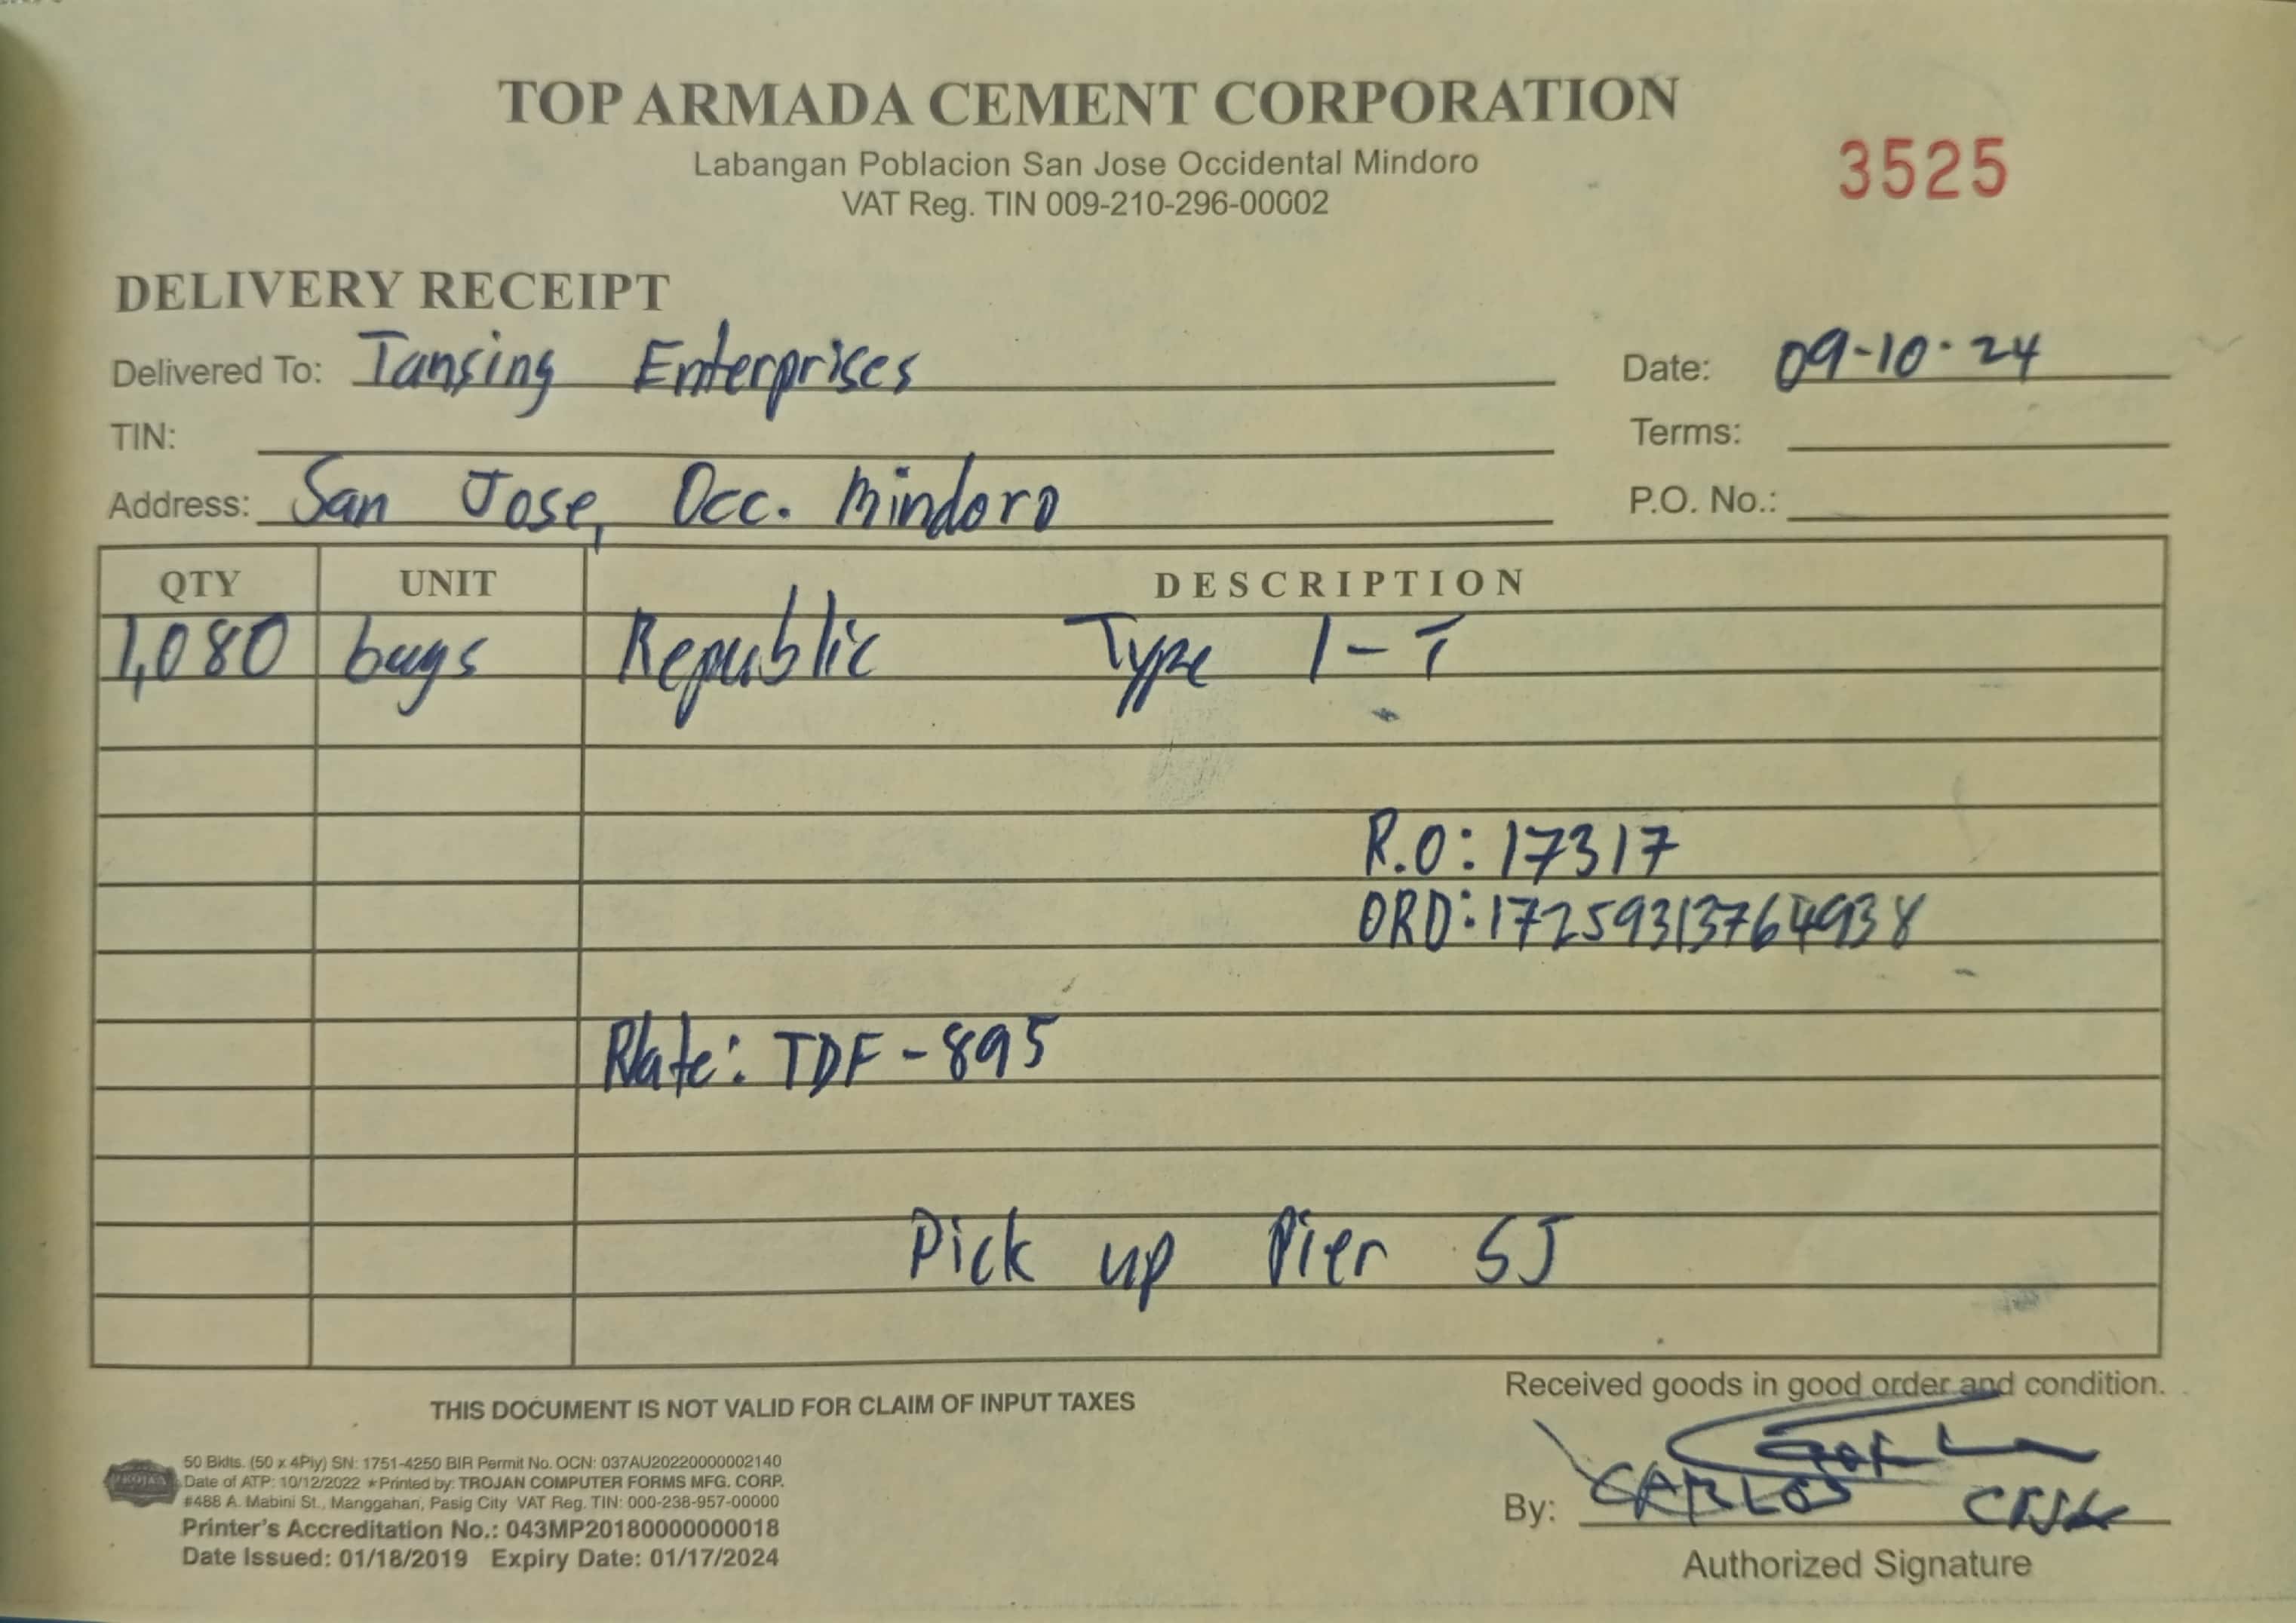 TOP ARMADA CEMENT CORPORATION
Labangan Poblacion San Jose Occidental Mindoro
VAT Reg. TIN 009-210-296-00002
3525
DELIVERY RECEIPT
Delivered To: Tansing Enterprises
Date: 09-10-24
TIN:
Terms:
Address: San Jose, Occ. Mindoro
P.O. No.:
QTY UNIT DESCRIPTION
1,080 bags Republic Type 1-T
R.O: 17317
ORD: 17259313764938
Plate: TDF-895
Pick up Pier SJ
Received goods in good order and condition.
THIS DOCUMENT IS NOT VALID FOR CLAIM OF INPUT TAXES
TROJAN
50 Bklts. (50 x 4Ply) SN: 1751-4250 BIR Permit No. OCN: 037AU20220000002140
Date of ATP: 10/12/2022 ★Printed by: TROJAN COMPUTER FORMS MFG. CORP.
#488 A. Mabini St., Manggahan, Pasig City VAT Reg. TIN: 000-238-957-00000
Printer's Accreditation No.: 043MP20180000000018
Date Issued: 01/18/2019 Expiry Date: 01/17/2024
By: CARLOS
Authorized Signature